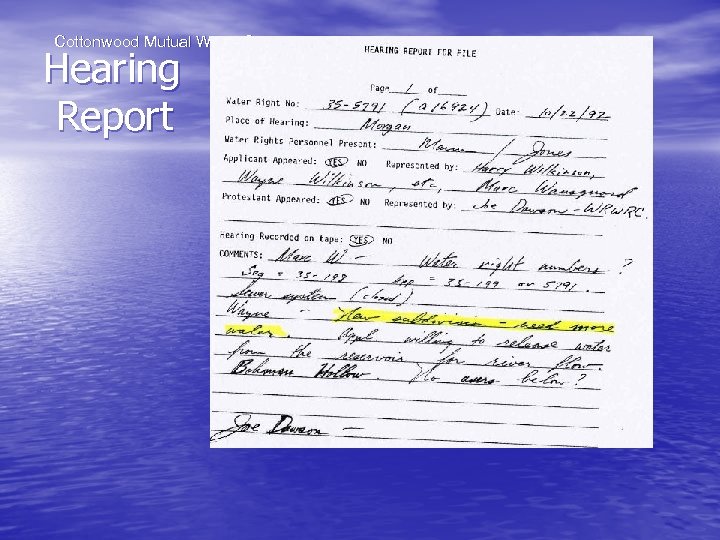 Cottonwood Mutual W
Hearing
Report
HEARING REPORT FOR FILE
Page 1 of
Water Right No: 35-5791 (a16424) Date: 10/22/92
Place of Hearing: Morgan
Water Rights Personnel Present: / Jones
Applicant Appeared: YES NO Represented by: Harry Wilkinson,
Wayne Wilkinson, etc, Marc Wangsgard
Protestant Appeared: YES NO Represented by: Joe Dawson - WRWRC.
Hearing Recorded on tape: YES NO
COMMENTS: Marc W - Water right numbers ?
= 35-199 = 35-199 or 5791.
Sewer system (closed)
Wayne - New subdivision - need more
water. Appl willing to release water
from the reservoir for river flow.
Bohman Hollow. No users below?
Joe Dawson -